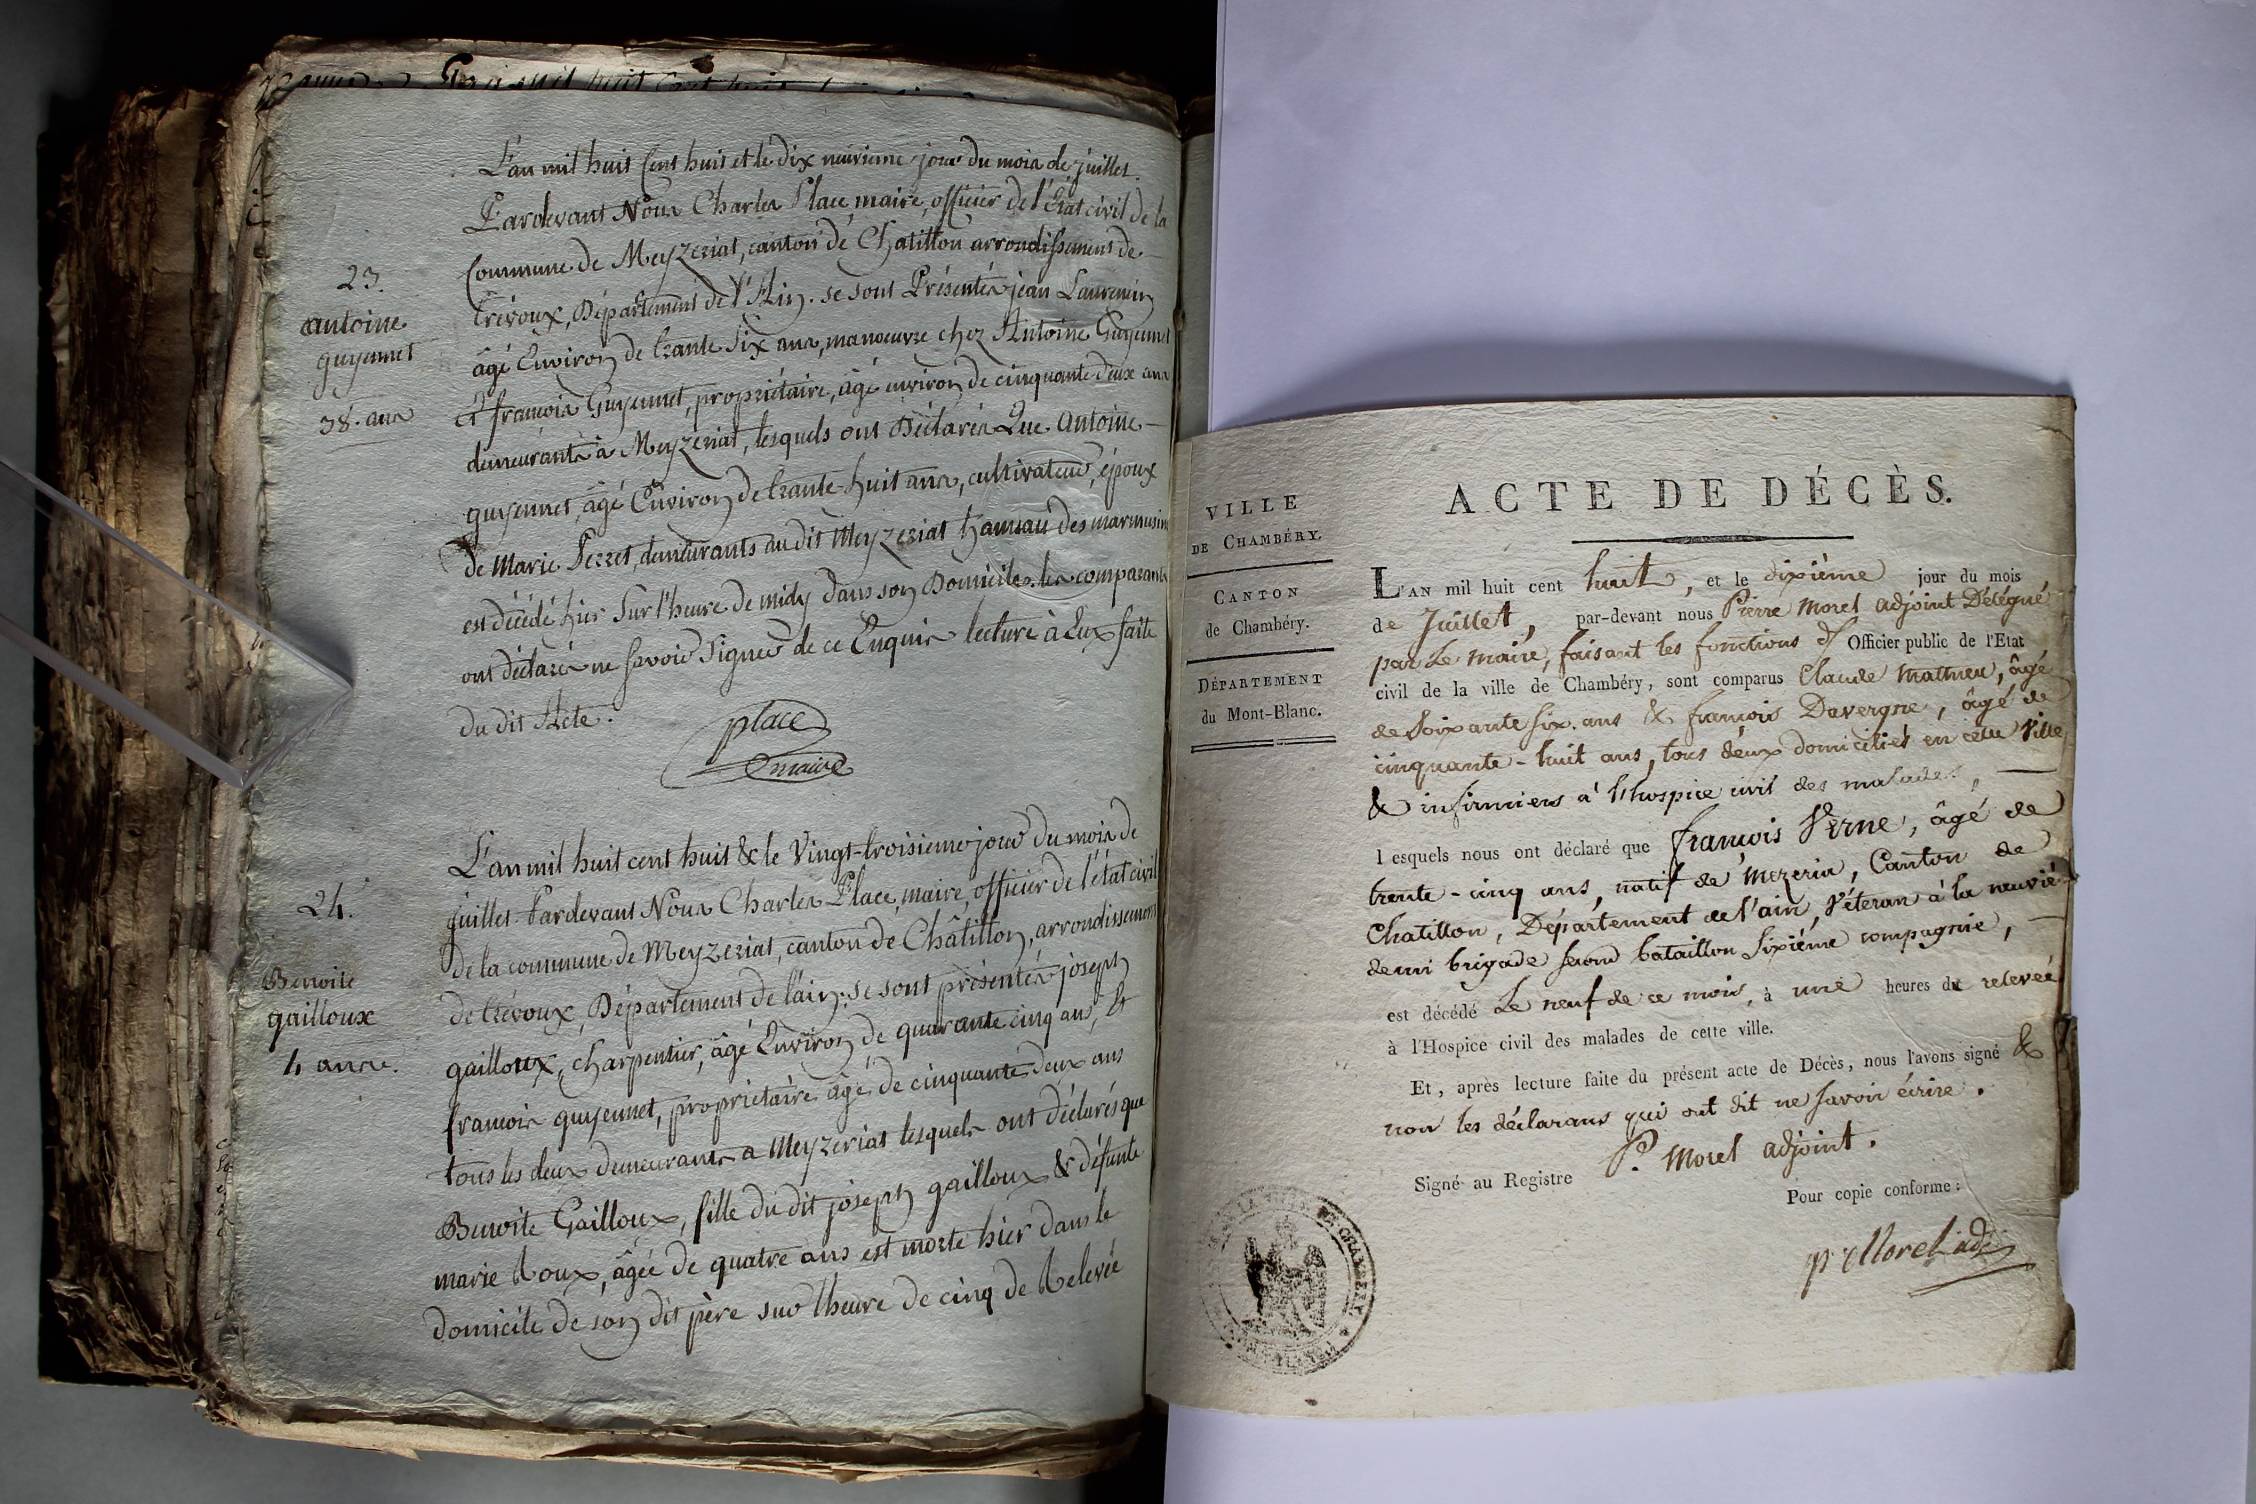 23.
antoine
guyennet
38. ans
L'an mil huit Cent huit et le dix neuvieme jour du mois de juillet.
Pardevant Nous Charles Place maire, officier de l'État civil de la
Commune de Meyzeriat, canton de Chatillon arrondissement de
trévoux, Département de l'Ain. se sont Présentés jean Laurencin
âgé Environ de trante Six ans, manoeuvre chez Antoine Guyennet
et françois Guyennet, propriétaire, âgé environ de cinquante deux ans
demeurants à Meyzeriat, lesquels ont Déclarés Que Antoine
guyennet, âgé Environ de trante huit ans, cultivateur, époux
de Marie Perret, demeurants au dit Meyzeriat hameau des marmusins
est décédé hier Sur l'heure de midy dans son Domicile. les comparants
ont déclarés ne Savoir Signer de ce Enquis lecture à Eux faite
du dit Acte.
place
maire
24.
Benoite
gailloux
4 ans.
L'an mil huit cent huit & le Vingt-troisieme jour du mois de
juillet Pardevant Nous Charles Place, maire, officier de l'état civil
de la commune de Meyzeriat, canton de Châtillon, arrondissement
de trévoux, Département de l'ain; se sont présentés joseph
gailloux, charpentier, âgé Environ de quarante cinq ans, &
francois guyennet, propriétaire âgé de cinquante deux ans
tous les deux demeurants a Meyzeriat lesquels ont déclarés que
Benoite Gailloux, fille du dit joseph gailloux & défunte
marie Roux, âgée de quatre ans est morte hier dans le
domicile de son dit père sur l'heure de cinq de Relevée
VILLE
DE CHAMBÉRY.
CANTON
de Chambéry.
DÉPARTEMENT
du Mont-Blanc.
ACTE DE DÉCÈS.
L'AN mil huit cent huit, et le dixiéme jour du mois
de Juillet, par-devant nous Pierre Morel adjoint Délégué
par Le maire, faisant les fonctions d' Officier public de l'Etat
civil de la ville de Chambéry, sont comparus Claude Mathieu, âgé
de Soixante six. ans & francois Davergne, âgé de
cinquante-huit ans, tous deux domiciliés en cette Ville
& infirmiers à l'hospice civil des malades,
lesquels nous ont déclaré que francois Verne, âgé de
trente-cinq ans, natif de Mezeria, Canton de
Chatillon, Département de l'ain, Véteran à la neuvié-
demi brigade second bataillon Sixiéme compagnie,
est décédé Le neuf de ce mois, à une heures de relevée
à l'Hospice civil des malades de cette ville.
Et, après lecture faite du présent acte de Décès, nous l'avons signé &
non les déclarans qui ont dit ne Savoir écrire.
Signé au Registre P. Morel adjoint.
Pour copie conforme:
P. Morel adj